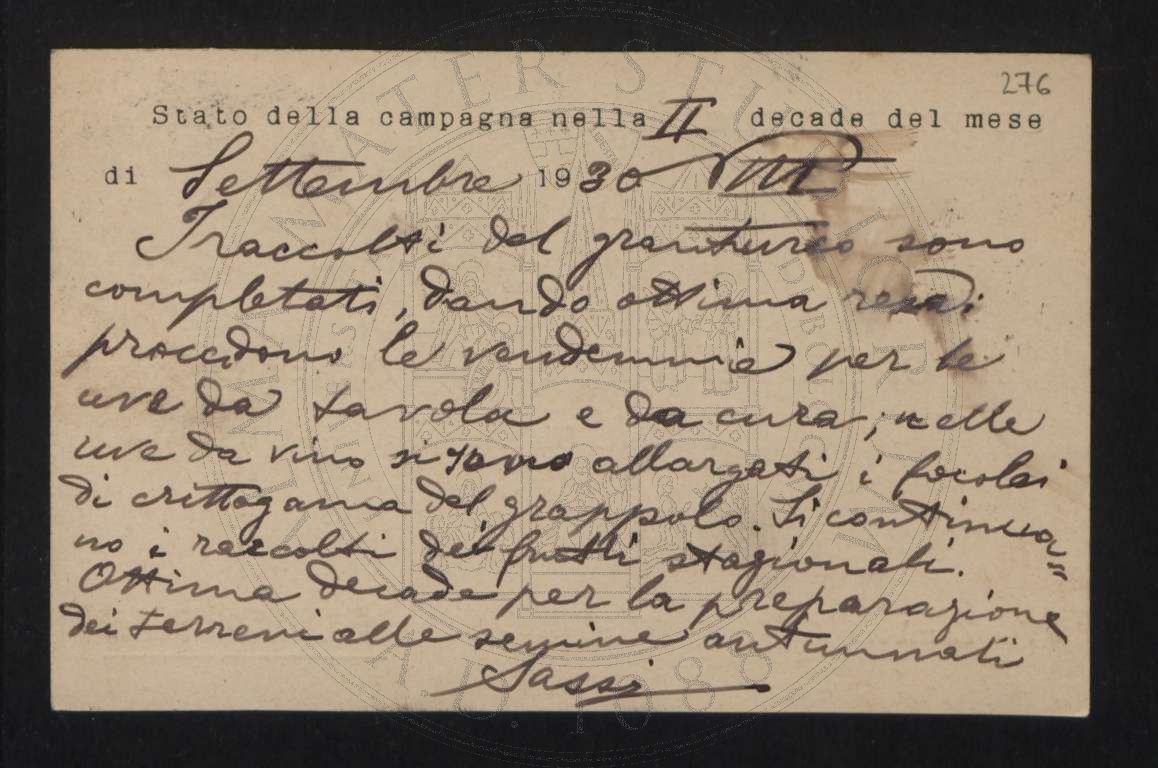 276
Stato della campagna nella II decade del mese
di Settembre 1930 VIII
I raccolti del granturco sono
completati, dando ottima resa;
procedono le vendemmie per le
uve da tavola e da cura; nelle
uve da vino si sono allargati i focolai
di crittogama del grappolo. Si continua=
no i raccolti dei frutti stagionali.
Ottima decade per la preparazione
dei terreni alle semine autunnali
Sassi
ALMA MATER STUDIORUM
A.D. 1088